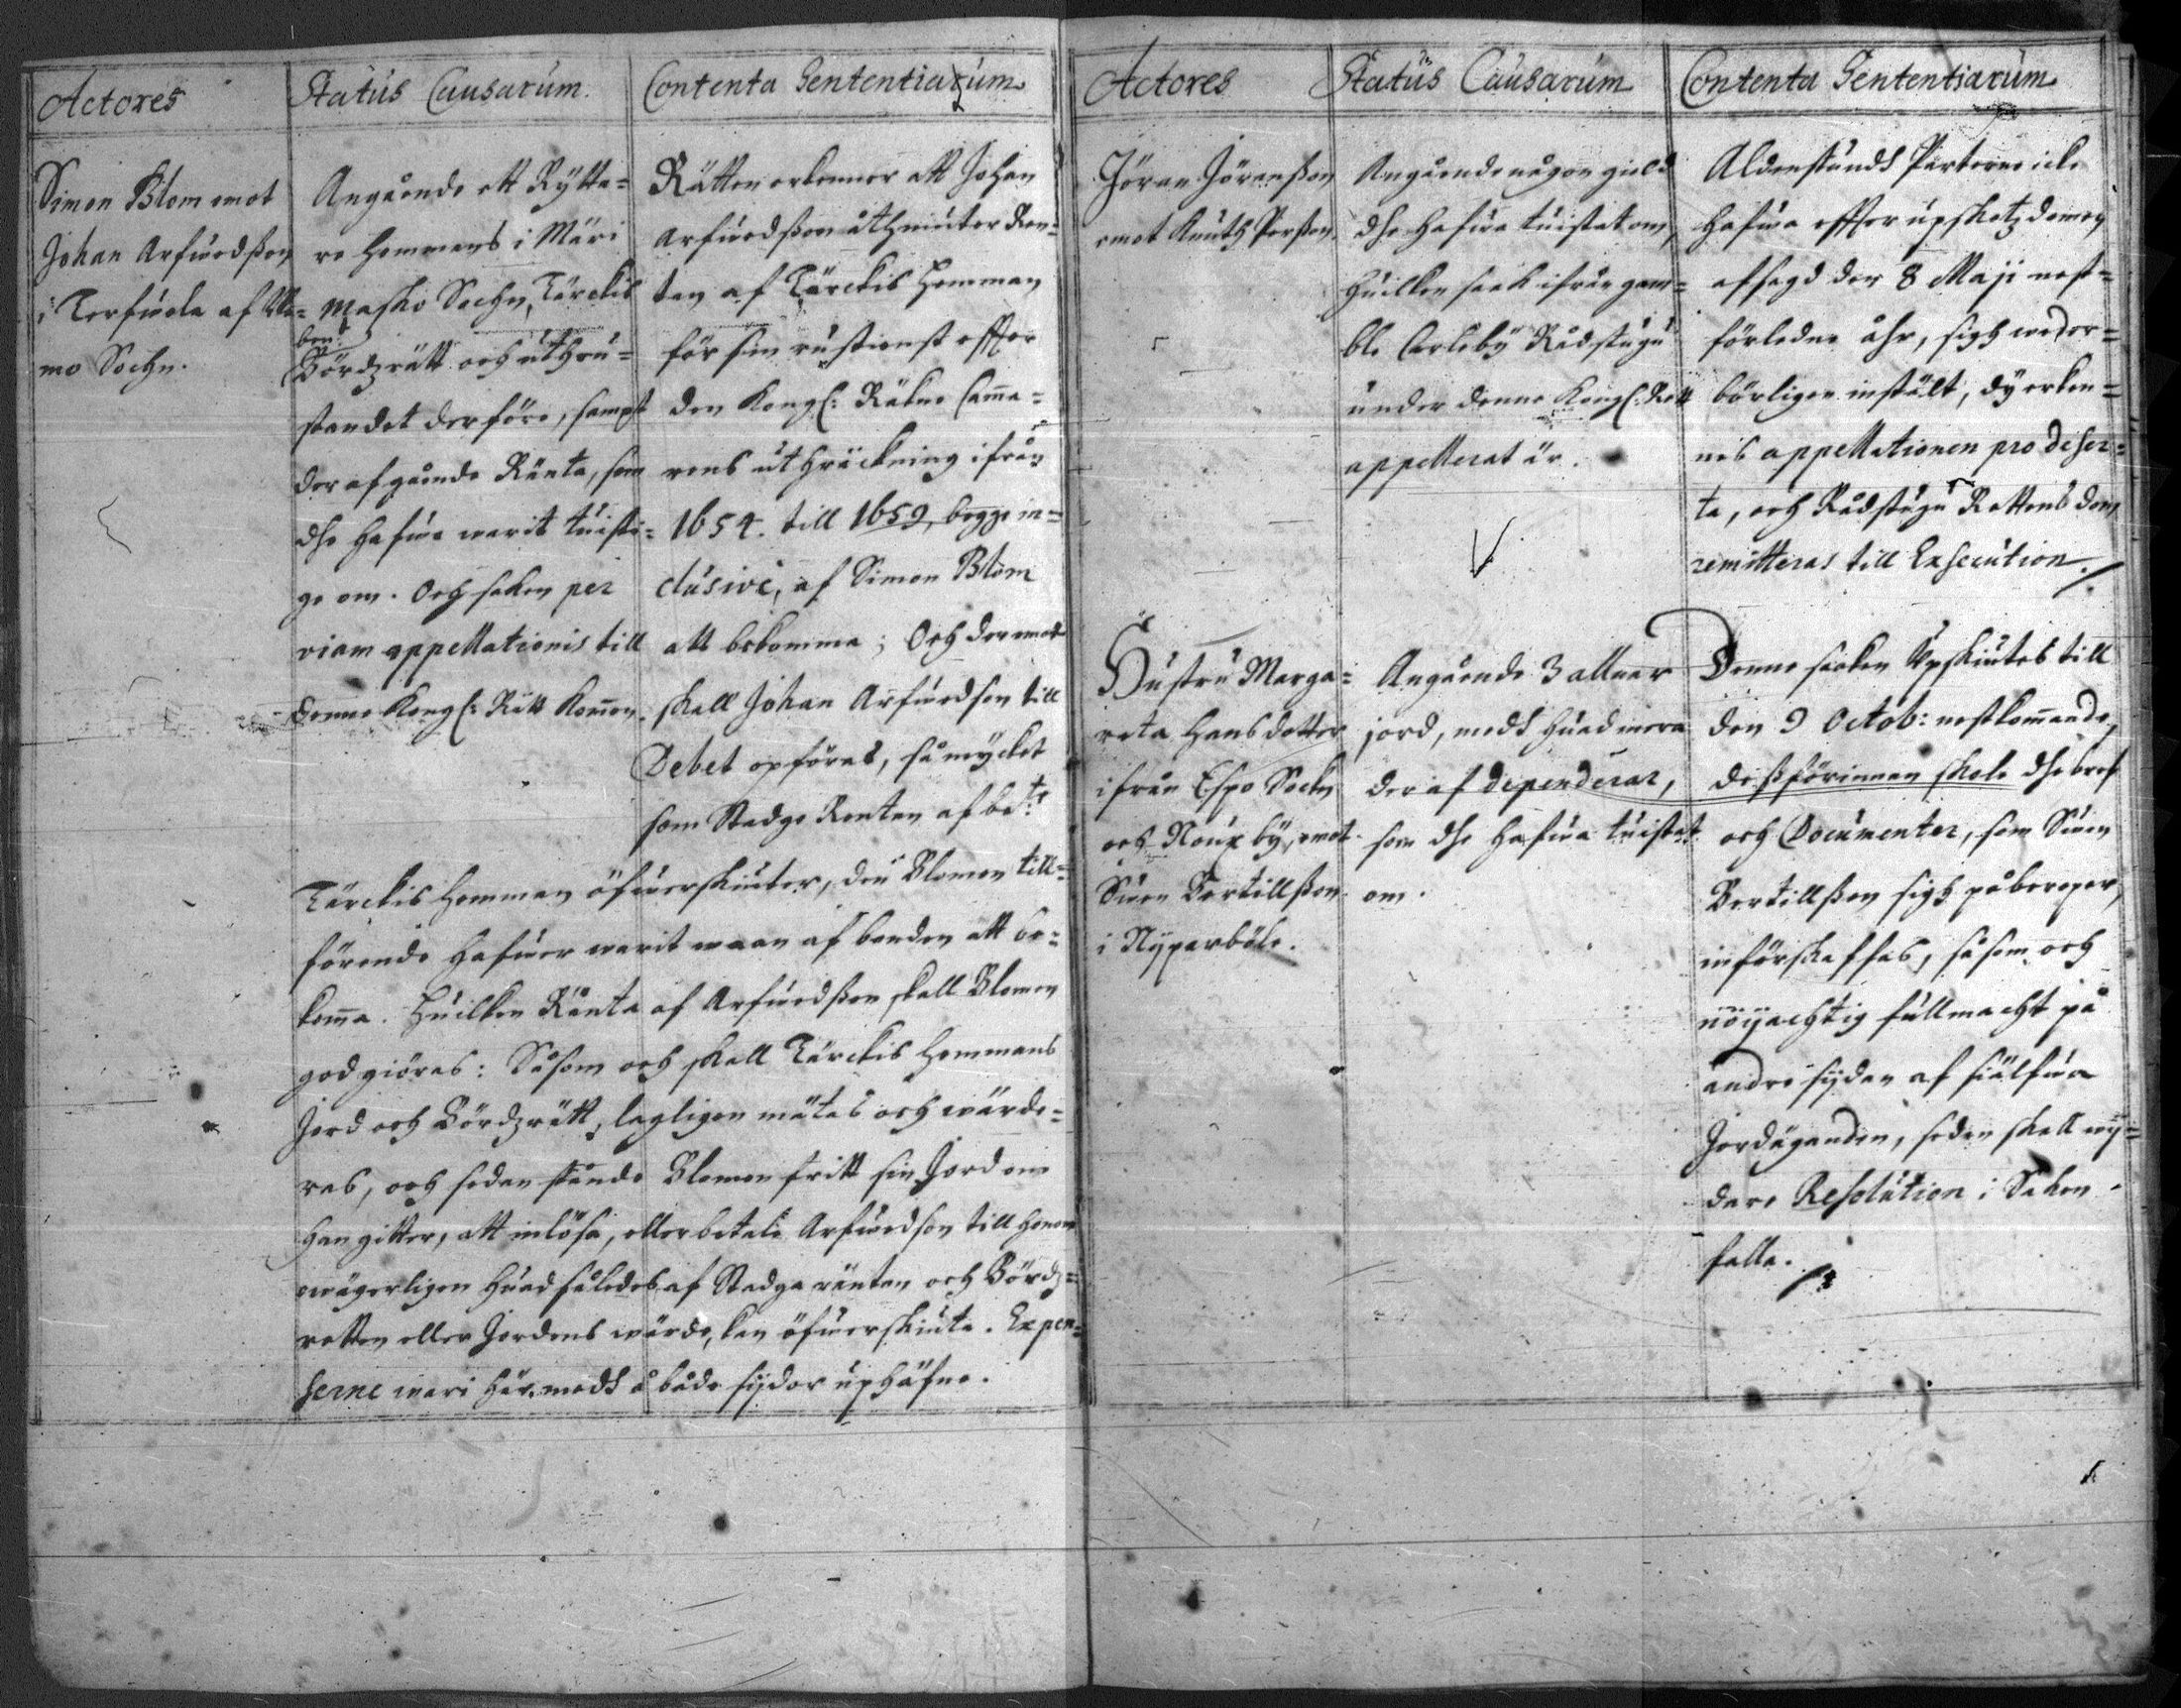 Actores
Simon Blom emot
Johan Arfwedßon
i Terfwola af We=
mo Sochn.
Status Causarum.
Angående ett Rytta=
re Hemmans i Märi
masko Sochn, Tärckis
ben:d
Bördzrätt och uthru=
standet derföre, sampt
deraf gående Ränta, som
dhe hafwa warit twisti=
ge om. Och saken per
viam appellationis till
denne Kongl: Rätt kommen.
Contenta Sententiarum
Rätten erkenner att Johan
Arfwedßon åthniuter Ren=
tan af Tärckis Hemman
för sin rustienst effter
den Kongl: Räkne Camma=
rens uthräckning ifrån
1654. till 1659, begge in=
clusive, af Simon Blom
att bekomma; Och deremot
skall Johan Arfwedson till
Debet opföras, så mycket
som Stadge Renten af be:te
Tärckis Hemman öfwerskiuter, den Blomen till=
förende hafwer warit waan af bonden att be=
komma. Hwilken Ränta af Arfwedßon skall Blomen
godgiöras: Såsom och skall Tärckis Hemmans
Jord och Bördzrätt, lagligen mätas och wärde=
ras, och sedan stånde Blomen fritt sin Jord om
han gitter, att inlösa, eller betale Arfwedson till honom
owägerligen hwad således af Stadga räntan och Bördz=
retten eller Jordens wärde, kan öfwerskiuta. Expen=
serne wari här medh å både sijdor uphäfne.
Actores
Jöran Jöranßon
emot Knuth Perßon.
Status Causarum
Angående någon gield
dhe hafwa twistat om,
hwilken saak ifrån gam=
ble Carleby Rådstugu
under denne Kongl: Rätt
appellerat är.
Contenta Sententiarum
Aldenstundh Parterne icke
hafwa effter upskotz domen
afsagd den 8 Maji nest=
förledne åhr, sigh weder=
börligen instält, dy erken=
nes appellationen pro deser=
ta, och Rådstugu Rettens dom
remitteras till Execution.
Hustru Marga=
reta Hansdotter
ifrån Espo Sochn
och Noux by, emot
Swen Bertillßon
i Nyparböle.
Angående 3 allnar
jord, medh hwad mera
der af dependerar,
som dhe hafwa twistat
om.
Denne saken Upskiutes till
den 9 Octob: nestkommande,
deßförinnan skole dhe bref
och Documenter, som Swen
Bertillßon sigh påberopar,
införskaffas, såsom och
nöijachtig fullmacht på
andre sijdan af siälfwa
Jordäganden, sedan skall wij=
dare Resolution i Saken
falla.